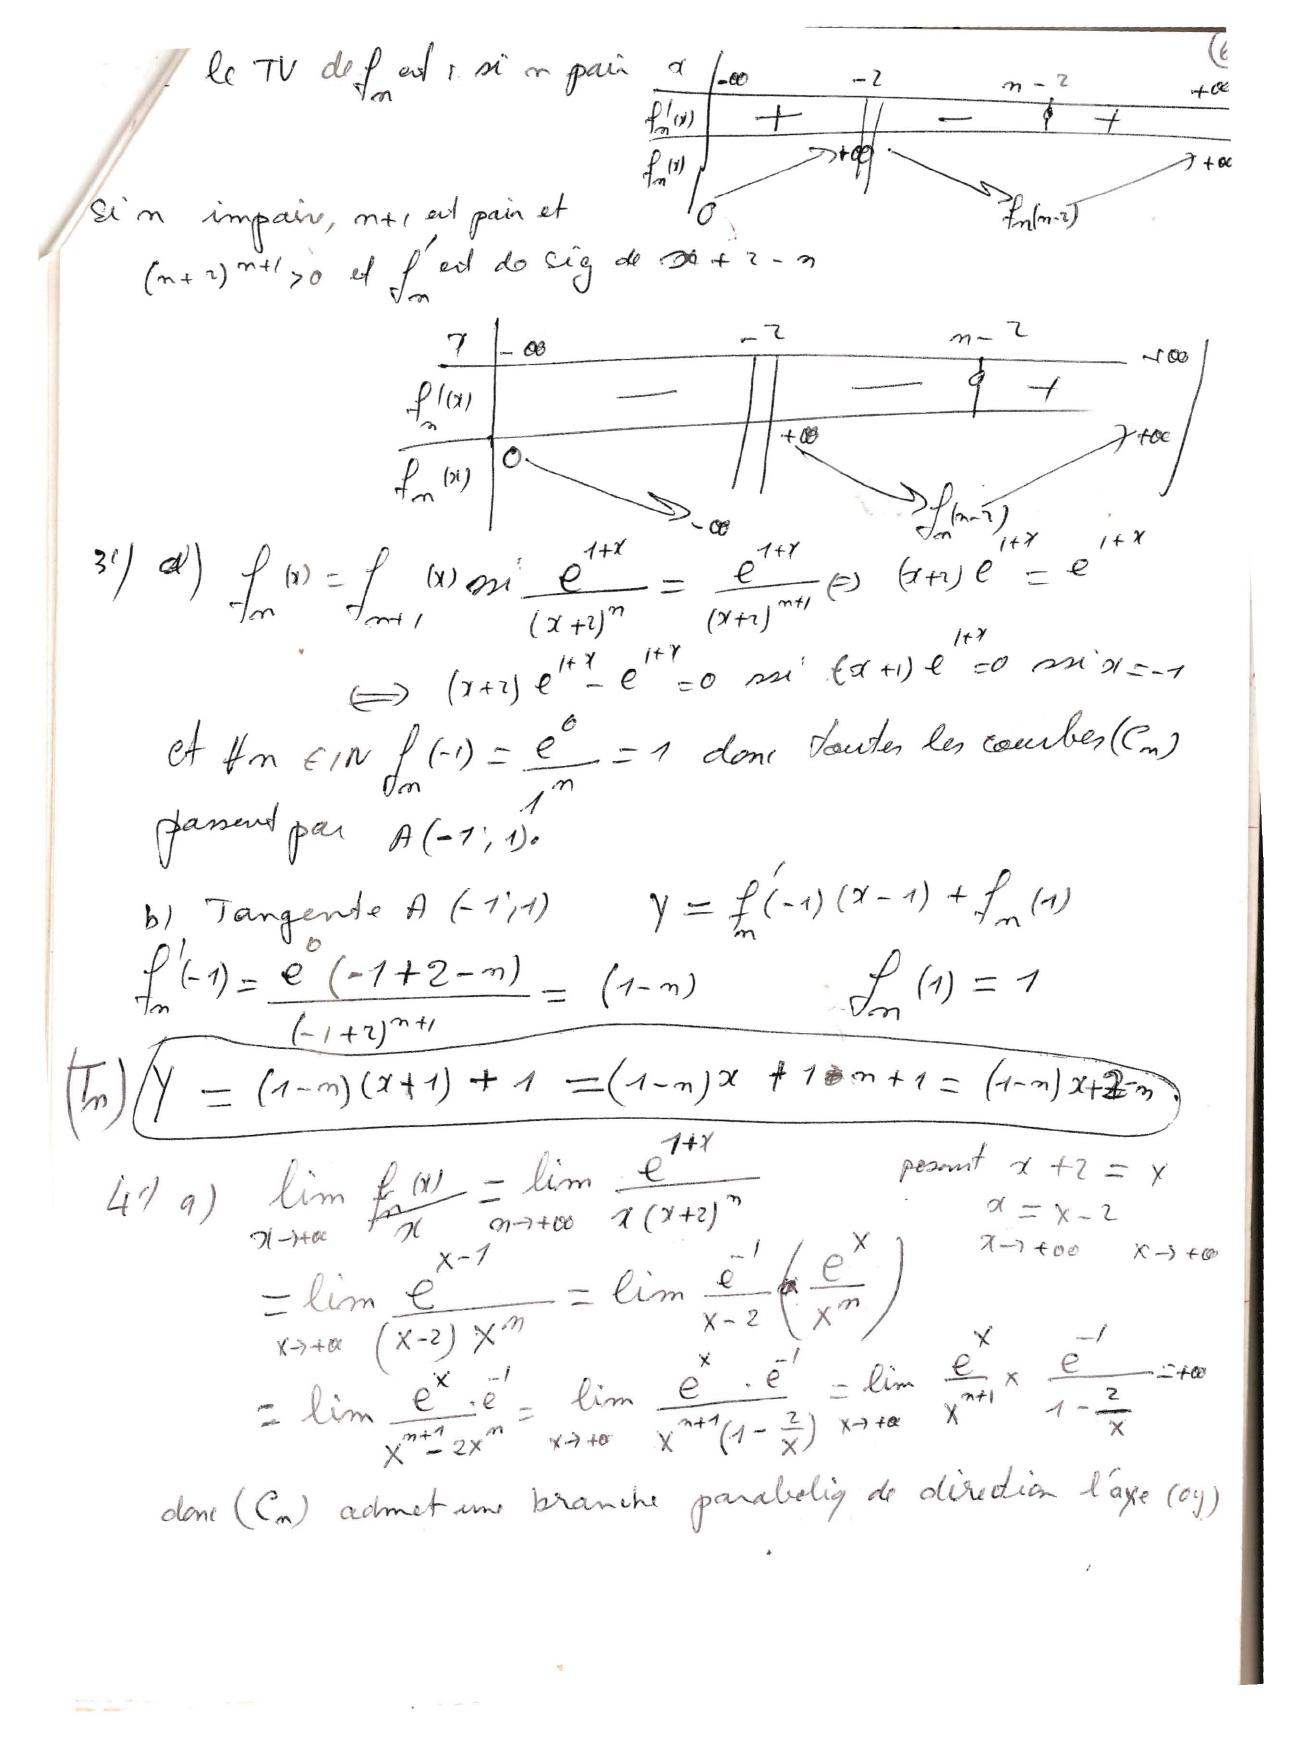 le TV de fₙ est : si n pair
x | -∞ -2 n-2 +∞
fₙ'(x) | + || - 0 +
fₙ(x) | 0 +∞ || fₙ(n-2) +∞
Si n impair, n+1 est pair et
(n+2)ⁿ⁺¹>0 et fₙ' est do sig de x+2-n
x | -∞ -2 n-2 +∞
fₙ'(x) | - || - 0 +
fₙ(x) | 0 -∞ || +∞ fₙ(n-2) +∞
3°/ a) fₙ(x) = fₙ₊₁(x) ssi e^(1+x)/(x+2)ⁿ = e^(1+x)/(x+2)ⁿ⁺¹ ⇔ (x+2)e^(1+x) = e^(1+x)
⟺ (x+2)e^(1+x) - e^(1+x) = 0 ssi (x+1)e^(1+x) = 0 ssi x=-1
et ∀n ∈ IN fₙ(-1) = e⁰/1ⁿ = 1 donc toutes les courbes (Cₙ)
passent par A(-1; 1).
b) Tangente A (-1; 1) y = fₙ'(-1)(x-1) + fₙ(1)
fₙ'(-1) = e⁰(-1+2-n)/(-1+2)ⁿ⁺¹ = (1-n) fₙ(1) = 1
(Tₙ) Y = (1-n)(x+1) + 1 = (1-n)x + 1-n+1 = (1-n)x+2-n.
4°/ a) lim x→+∞ fₙ(x)/x = lim n→+∞ e^(1+x)/x(x+2)ⁿ posant x+2 = X
x = X-2
x→+∞ X→+∞
= lim X→+∞ e^(X-1)/(X-2)Xⁿ = lim e⁻¹/X-2 (e^X/Xⁿ)
= lim e^X.e⁻¹/Xⁿ⁺¹-2Xⁿ = lim X→+∞ e^X.e⁻¹/Xⁿ⁺¹(1-2/X) = lim X→+∞ e^X/Xⁿ⁺¹ × e⁻¹/1-2/X = +∞
donc (Cₙ) admet une branche paraboliq de direction l'axe (oy)